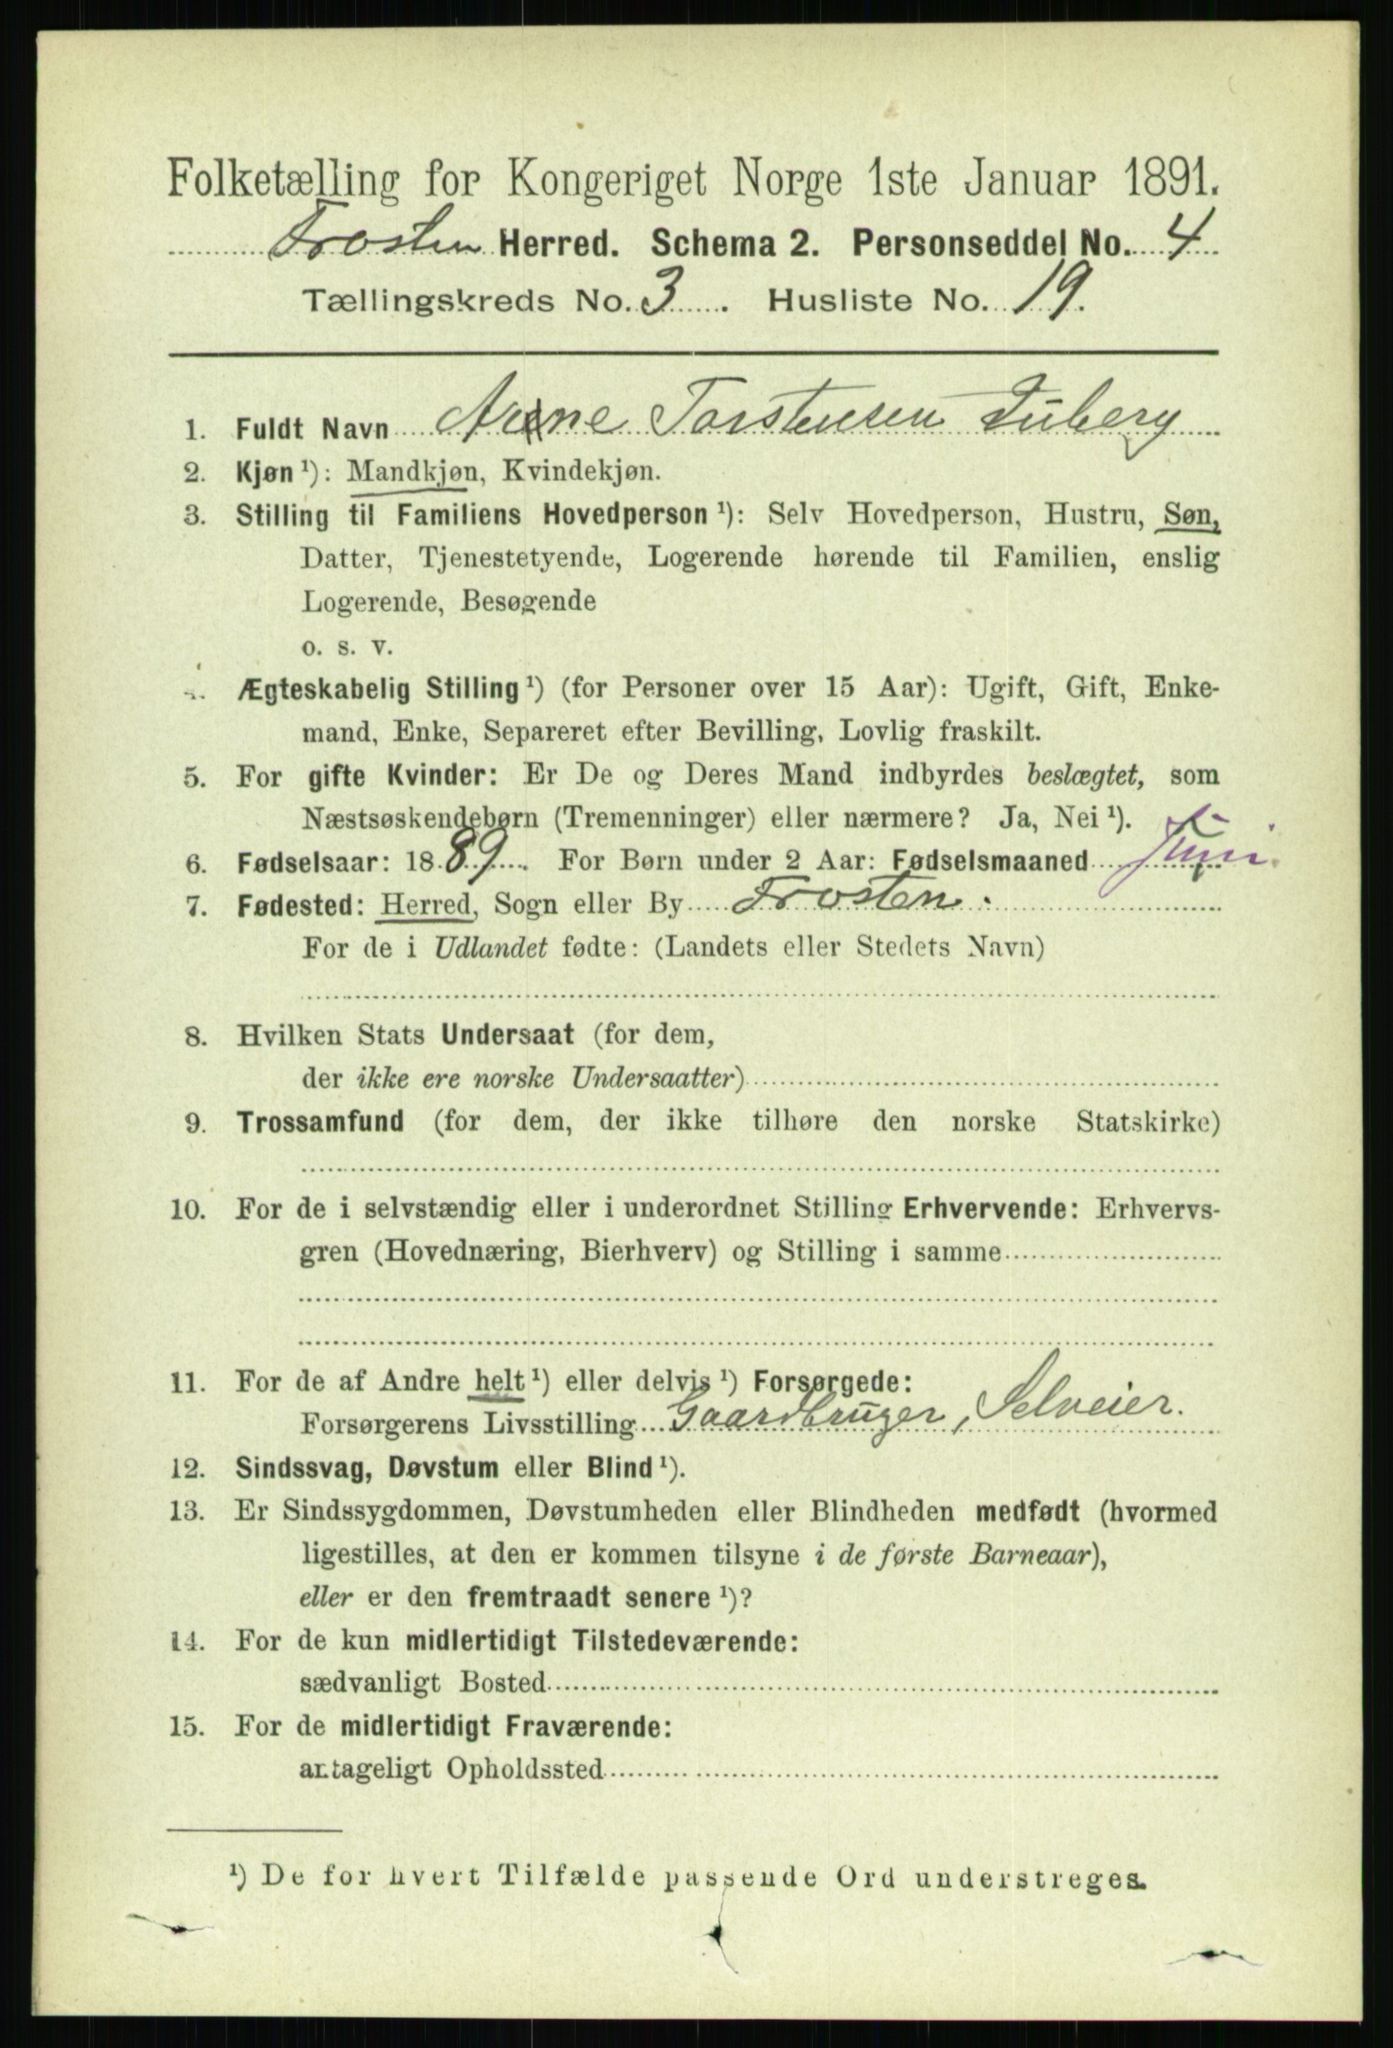 Folketælling for Kongeriget Norge 1ste Januar 1891.
Frosten Herred. Schema 2. Personseddel No. 4
Tællingskreds No. 3. Husliste No. 19.
1. Fuldt Navn Arne Torstensen Juberg
2. Kjøn ¹): Mandkjøn, Kvindekjøn.
3. Stilling til Familiens Hovedperson ¹): Selv Hovedperson, Hustru, Søn,
Datter, Tjenestetyende, Logerende hørende til Familien, enslig
Logerende, Besøgende
o. s. v.
4. Ægteskabelig Stilling ¹) (for Personer over 15 Aar): Ugift, Gift, Enke-
mand, Enke, Separeret efter Bevilling, Lovlig fraskilt.
5. For gifte Kvinder: Er De og Deres Mand indbyrdes beslægtet, som
Næstsøskendebørn (Tremenninger) eller nærmere? Ja, Nei ¹).
6. Fødselsaar: 1889. For Børn under 2 Aar: Fødselsmaaned Juni.
7. Fødested: Herred, Sogn eller By Frosten.
For de i Udlandet fødte: (Landets eller Stedets Navn)
8. Hvilken Stats Undersaat (for dem,
der ikke ere norske Undersaatter)
9. Trossamfund (for dem, der ikke tilhøre den norske Statskirke)
10. For de i selvstændig eller i underordnet Stilling Erhvervende: Erhvervs-
gren (Hovednæring, Bierhverv) og Stilling i samme
11. For de af Andre helt ¹) eller delvis ¹) Forsørgede:
Forsørgerens Livsstilling Gaardbruger, Selveier.
12. Sindssvag, Døvstum eller Blind ¹).
13. Er Sindssygdommen, Døvstumheden eller Blindheden medfødt (hvormed
ligestilles, at den er kommen tilsyne i de første Barneaar),
eller er den fremtraadt senere ¹)?
14. For de kun midlertidigt Tilstedeværende:
sædvanligt Bosted
15. For de midlertidigt Fraværende:
antageligt Opholdssted
¹) De for hvert Tilfælde passende Ord understreges.